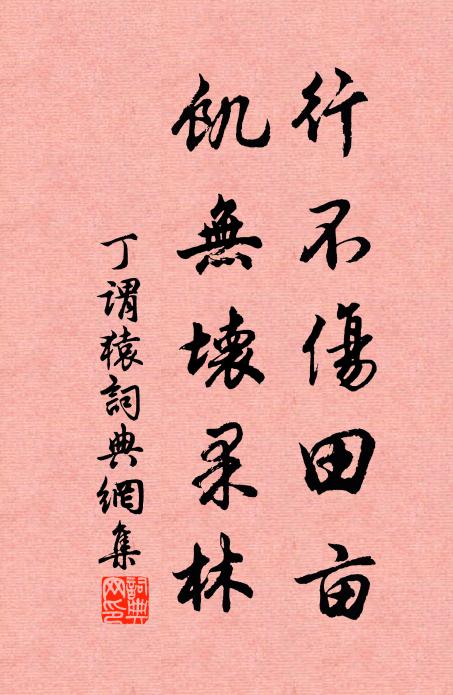 行不傷田亩
飢無壞果林
丁謂猿詞典網集
詞典